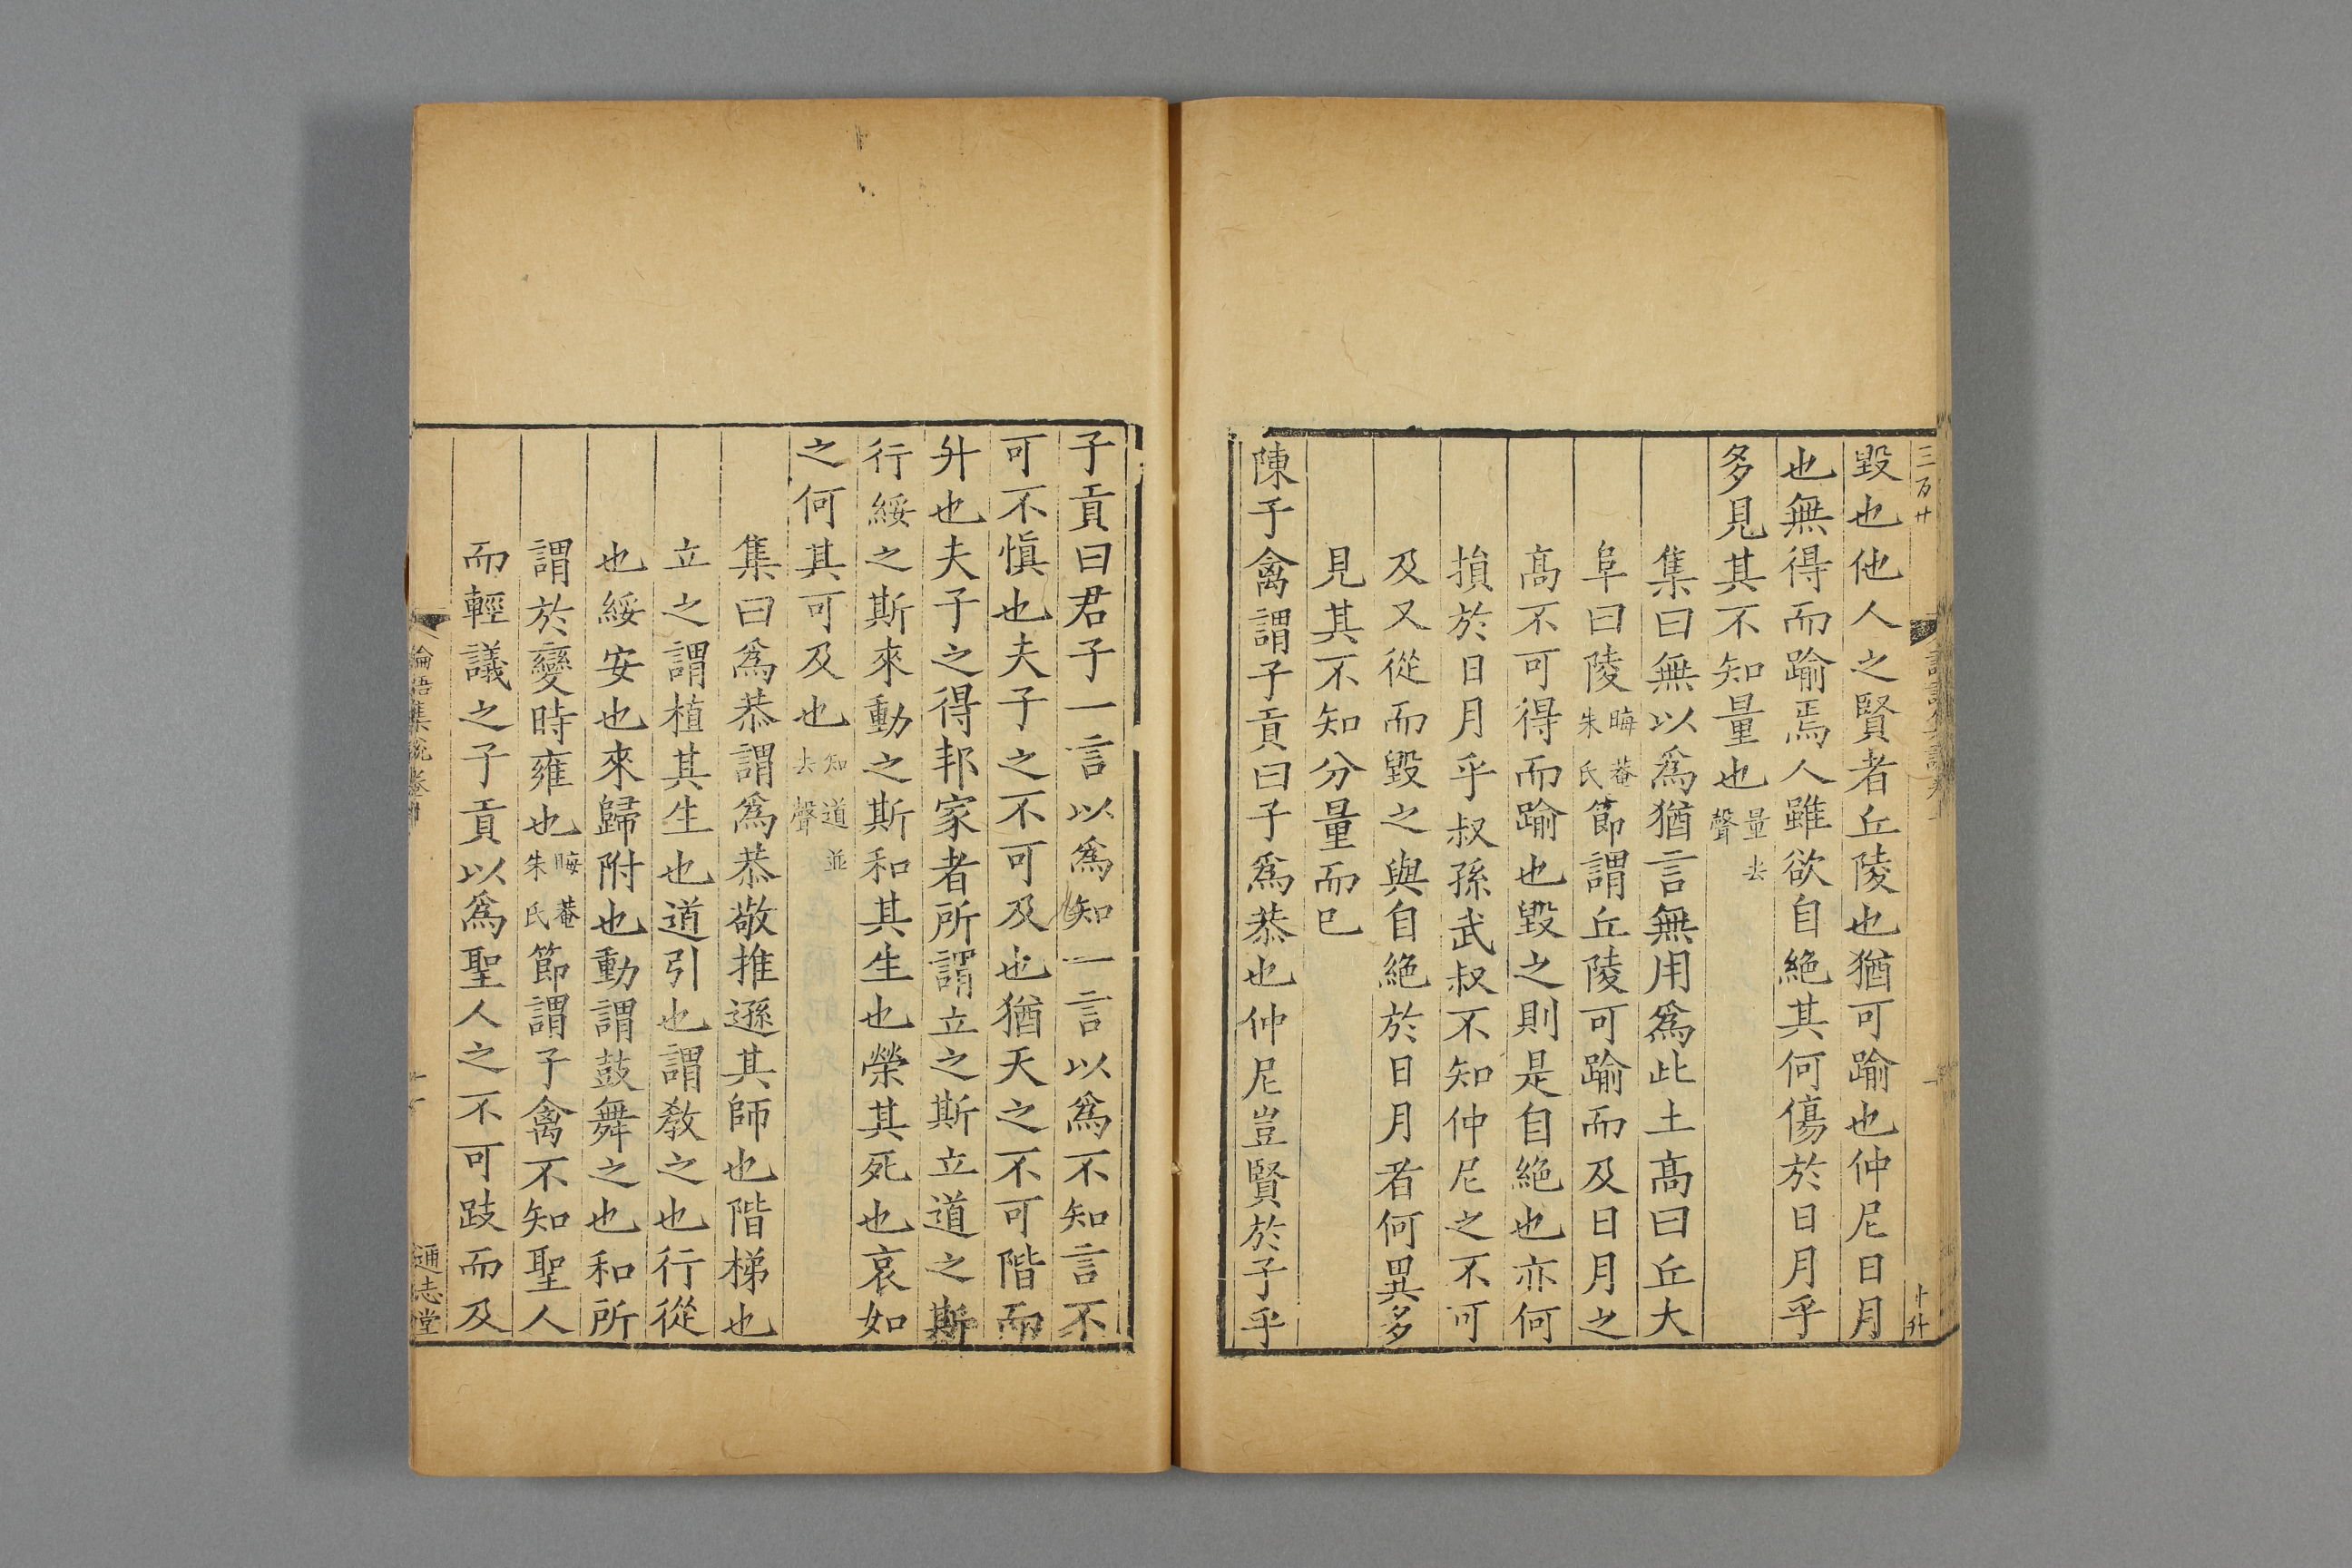 三百廿
毀也他人之賢者丘陵也猶可踰也仲尼日月
也無得而踰焉人雖欲自絶其何傷於日月乎
多見其不知量也量去聲
集曰無以爲猶言無用爲此土髙曰丘大
阜曰陵晦菴朱氏節謂丘陵可踰而及日月之
髙不可得而踰也毀之則是自絶也亦何
損於日月乎叔孫武叔不知仲尼之不可
及又從而毀之與自絶於日月者何異多
見其不知分量而已
陳子禽謂子貢曰子爲恭也仲尼豈賢於子乎
子貢曰君子一言以爲知一言以爲不知言不
可不愼也夫子之不可及也猶天之不可階而
升也夫子之得邦家者所謂立之斯立道之斯
行綏之斯來動之斯和其生也榮其死也哀如
之何其可及也知道並去聲
集曰爲恭謂爲恭敬推遜其師也階梯也
立之謂植其生也道引也謂敎之也行從
也綏安也來歸附也動謂鼓舞之也和所
謂於變時雍也晦菴朱氏節謂子禽不知聖人
而輕議之子貢以爲聖人之不可跂而及
論語集説卷十
通志堂